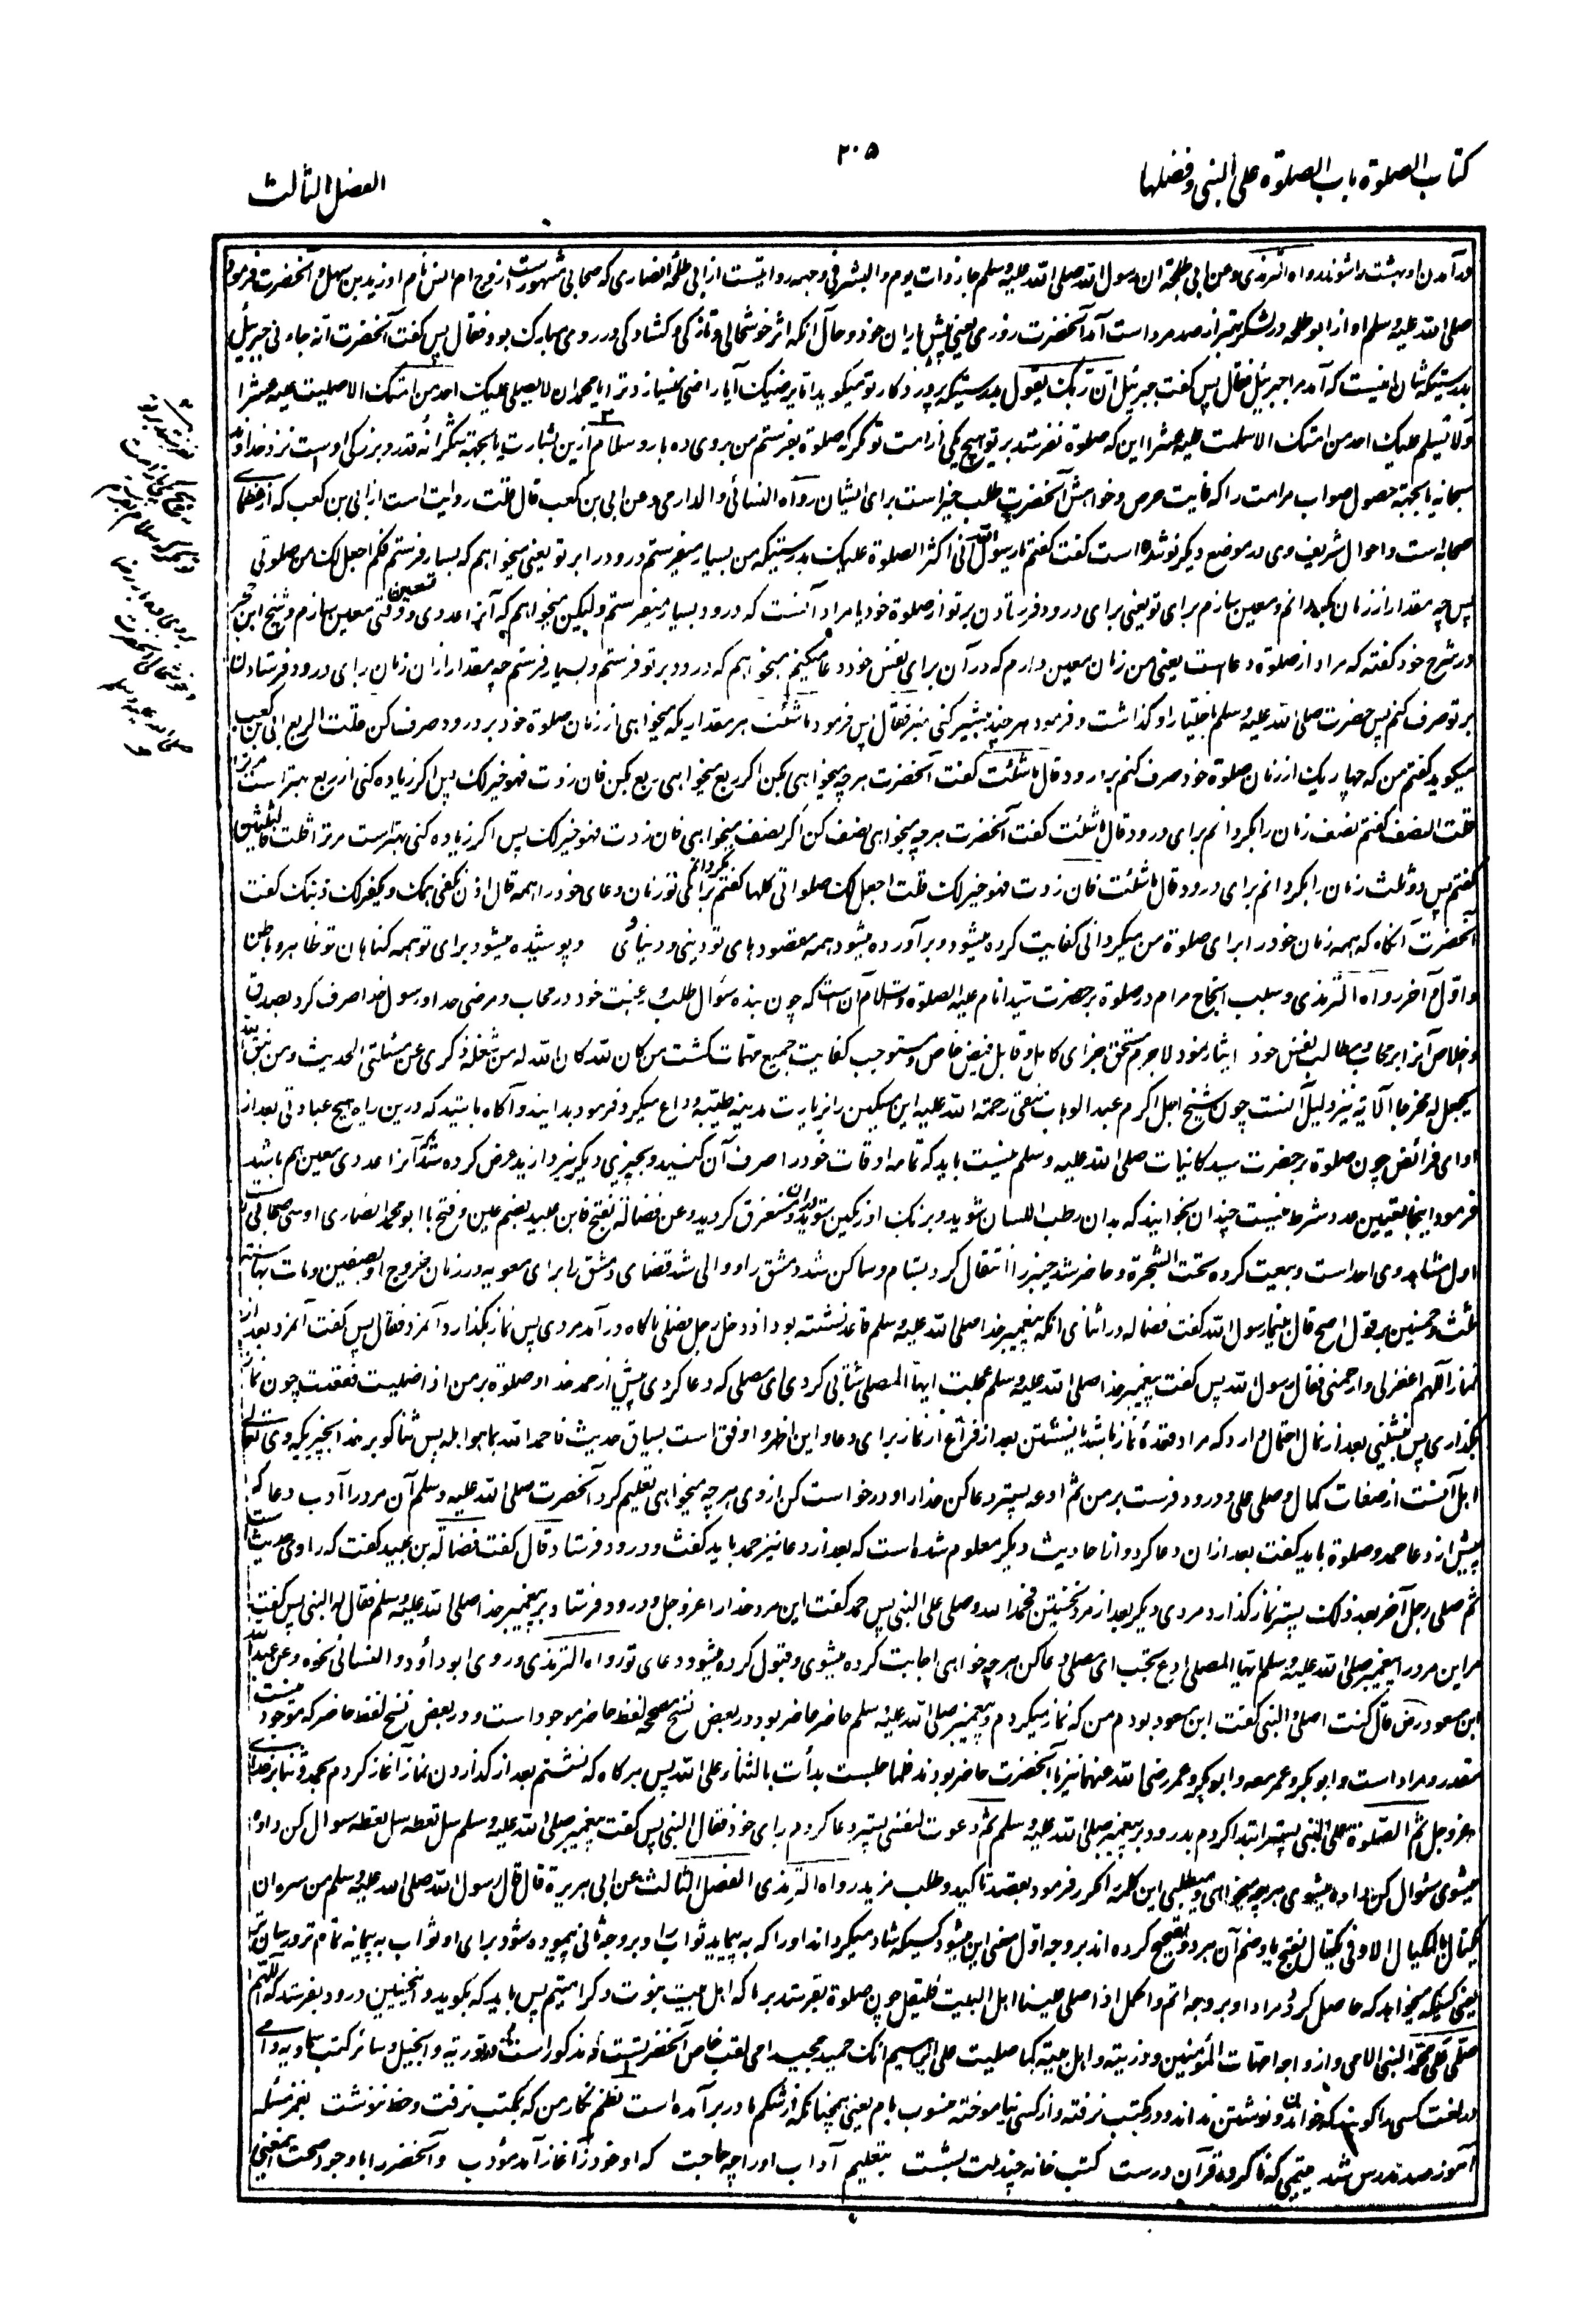 ۲۰۵
کتاب الصلوة باب الصلوة علی النبی وفضلها
الفصل الثالث
درآمدن او بهشت را شوند رواه الترمذی وعن ابی طلحة ان رسول الله صلی الله علیه وسلم جاء ذات یوم والبشر فی وجهه روایتست از ابی طلحه انصاری که صحابی مشهورست زوج ام انس نام او زید بن سهل و آنحضرت فرمود
صلی الله علیه وسلم آواز ابو طلحه در لشکر بهتر از صد مرد است آمد آنحضرت روزی یعنی پیش یاران خود و حال آنکه اثر خوشحالی و تازگی و کشادگی در روی مبارک بود فقال پس گفت آنحضرت انه جاءنی جبرئیل
بدرستیکه شان اینست که آمد مرا جبرئیل فقال پس گفت جبرئیل ان ربک یقول بدرستیکه پروردگار تو میگوید اما یرضیک آیا راضی نمیسازد ترا یا محمد ان لا یصلی علیک احد من امتک الا صلیت علیه عشرا
ولا یسلم علیک احد من امتک الا سلمت علیه عشرا این که صلوة نفرستد بر تو هیچ یکی از امت تو مگر آنکه صلوة بفرستم من بر وی ده بار و سلام ازین بشارت یا بجهة شکرانه قدر و بزرگی اوست نزد خداوند
سبحانه یا بجهة حصول صواب مر امت را که غایت حرص و خواهش آنحضرت طلب خیر است برای ایشان رواه النسائی والدارمی وعن ابی بن کعب قال قلت روایت است از ابی بن کعب که از عظمای
صحابه است و احوال شریف وی در موضع دیگر نوشته شده است گفت گفتم یا رسول الله انی اکثر الصلوة علیک بدرستیکه من بسیار میفرستم درود را بر تو یعنی میخواهم که بسیار فرستم فکم اجعل لک من صلوتی
پس چه مقدار از زمان بگردانم و معین سازم برای تو یعنی برای درود فرستادن بر تو از صلوة خود یا مراد آنست که درود بسیار میفرستم ولیکن میخواهم که آنرا عددی و وقتی معین سازم و شیخ ابن حجر
در شرح خود گفته که مراد از صلوة دعا است یعنی من زمان معین دارم که در آن برای نفس خود دعا میکنم میخواهم که درود بر تو فرستم و بسیار فرستم چه مقدار ازان زمان را برای درود فرستادن
بر تو صرف کنم پس حضرت صلی الله علیه وسلم باختیار او گذاشت و فرمود هر چند بیشتر کنی بهتر فقال پس فرمود ما شئت هر مقداریکه میخواهی از زمان صلوة خود بر درود صرف کن قلت الربع ابی بن کعب
میگوید گفتم من که چهار یک از زمان صلوة خود صرف کنم برای درود قال ما شئت گفت آنحضرت هر چه میخواهی بکن اگر ربع میخواهی ربع بکن فان زدت فهو خیر لک پس اگر زیاده کنی از ربع بهتر است مر ترا
قلت النصف گفتم نصف زمان را بگردانم برای درود قال ما شئت گفت آنحضرت هر چه میخواهی بکن اگر نصف میخواهی فان زدت فهو خیر لک پس اگر زیاده کنی بهترست مر ترا قلت فالثلثین
گفتم پس دو ثلث زمان را بگردانم برای درود قال ما شئت فان زدت فهو خیر لک قلت اجعل لک صلواتی کلها گفتم بگردانم برای تو زمان دعای خود را همه قال اذن تکفی همک ویکفر لک ذنبک گفت
آنحضرت آنگاه که همه زمان خود را برای صلوة من میگردانی کفایت کرده میشود و برآورده میشود همه مقصودهای تو دینی و دنیائی و پوشیده میشود برای تو همه گناهان تو ظاهر و باطن
و اول و آخر رواه الترمذی و سبب انجاح مرام در صلوة بر حضرت سید انام علیه الصلوة والسلام آنست که چون بنده سؤال طلب و رغبت خود در محاب و مرضی خدا و رسول خدا صرف کرد بصدق
و اخلاص آنرا بر محاب و مطالب نفس خود ایثار نمود لاجرم مستحق جزای کامل و قابل فیض خاص و مستوجب کفایت جمیع مهمات گشت من کان لله کان الله له من شغله ذکری عن مسئلتی الحدیث ومن یتق الله
یجعل له مخرجا الآیة نیز دلیل آنست چون شیخ اجل اکرم عبد الوهاب متقی رحمة الله علیه این مسکین را بزیارت مدینه طیبه وداع میکرد فرمود بدانید و آگاه باشید که درین راه هیچ عبادتی بعد از
ادای فرائض چون صلوة بر حضرت سید کائنات صلی الله علیه وسلم نیست باید که تمامه اوقات خود را صرف آن کنید و بچیزی دیگر نپردازید عرض کرده شد که آنرا عددی معین هم باشد
فرمود اینجا تعیین عدد شرط نیست چندان بخوانید که بدان رطب اللسان شوید و برنگ او رنگین شوید و دران مستغرق گردید وعن فضالة بفتح فا بن عبید بضم عین و فتح با ابو محمد انصاری اوسی صحابی
اول مشاهد وی احد است و بیعت کرده تحت الشجرة و حاضر شد خیبر را انتقال کرد بشام و ساکن شد دمشق را و والی شد قضای دمشق را برای معویه در زمان خروج او بصفین و مات بها سنة
ثلث و خمسین بر قول اصح قال بینما رسول الله گفت فضاله در اثنای آنکه پیغمبر خدا صلی الله علیه وسلم قاعد نشسته بود اذ دخل رجل فصلی ناگاه درآمد مردی پس نماز بگذارد آنمرد فقال پس گفت آنمرد بعد از
نماز اللهم اغفر لی وارحمنی فقال رسول الله پس گفت پیغمبر خدا صلی الله علیه وسلم عجلت ایها المصلی شتابی کردی ای مصلی که دعا کردی پیش از حمد خدا و صلوة بر من اذا صلیت فقعدت چون نماز
بگذاری پس بنشینی بعد از نماز احتمال دارد که مراد قعدهٔ نماز باشد یا نشستن بعد از فراغ از نماز برای دعا و این اظهر و اوفق است بسیاق حدیث فاحمد الله بما هو اهله پس ثنا گو بر خدا بچیزیکه وی تعالی
اهل آنست از صفات کمال وصلی علی و درود فرست بر من ثم ادعه پستر دعا کن خدا را و درخواست کن از وی هر چه میخواهی تعلیم کرد آنحضرت صلی الله علیه وسلم آن مرد را آداب دعا که
پیش از دعا حمد و صلوة باید گفت بعد ازان دعا کرد و از احادیث دیگر معلوم شده است که بعد از دعا نیز حمد باید گفت و درود فرستاد قال گفت فضالة بن عبید گفت که راوی حدیث است
ثم صلی رجل آخر بعد ذلک پستر نماز گذارد مردی دیگر بعد از مرد نخستین فحمد الله وصلی علی النبی پس حمد گفت این مرد خدا را عز وجل و درود فرستاد بر پیغمبر خدا صلی الله علیه وسلم فقال له النبی پس گفت
مر این مرد را پیغمبر صلی الله علیه وسلم ایها المصلی ادع تجب ای مصلی دعا کن هر چه خواهی اجابت کرده میشوی و قبول کرده میشود دعای تو رواه الترمذی وروی ابو داؤد والنسائی نحوه وعن عبد الله
ابن مسعود رض قال کنت اصلی والنبی گفت ابن مسعود بودم من که نماز میکردم و پیغمبر صلی الله علیه وسلم حاضر حاضر بود در بعض نسخ مصححه لفظ حاضر موجود است و در بعض نسخ لفظ حاضر که موجود نیست
مقدر و مراد است وابو بکر وعمر معه و ابو بکر و عمر رضی الله عنهما نیز با آنحضرت حاضر بودند فلما جلست بدأت بالثناء علی الله پس هرگاه که نشستم بعد از گذاردن نماز آغاز کردم بحمد و ثنا بر خدای
عز وجل ثم الصلوة علی النبی پستر ابتدا کردم بدرود بر پیغمبر صلی الله علیه وسلم ثم دعوت لنفسی پستر دعا کردم برای خود فقال النبی پس گفت پیغمبر صلی الله علیه وسلم سل تعطه سل تعطه سوال کن داده
میشوی سئوال کن داده میشوی هر چه میخواهی و میطلبی این کلمه را مکرر فرمود بقصد تاکید و طلب مزید رواه الترمذی الفصل الثالث عن ابی هریرة قال قال رسول الله صلی الله علیه وسلم من سره ان
یکتال بالمکیال الاوفی یکتال بفتح یا و ضم آن هر دو تصحیح کرده اند بر وجه اول معنی این میشود کسیکه شاد میگرداند او را که بپیماید ثواب را و بر وجه ثانی پیموده شود برای او ثواب به پیمانه تمام تر و رسان تر
یعنی کسیکه میخواهد که حاصل گردد مراد او بر وجه اتم و اکمل اذا صلی علینا اهل البیت فلیقل چون صلوة بفرستد بر ما که اهل بیت نبوت و کرامتیم پس باید که بگوید و اینچنین درود بفرستد که اللهم
صلی علی محمد النبی الامی وازواجه امهات المؤمنین وذریته واهل بیته کما صلیت علی ابراهیم انک حمید مجید امی لقب خاص آنحضرتست که مذکور است در توریة و انجیل و سائر کتب سماویه و امی
در لغت کسی را گویند که خواندن و نوشتن نداند و در مکتب نرفته و از کسی نیاموخته منسوب بام یعنی همچنانکه از شکم مادر برآمده است نظم نگار من که بمکتب نرفت و خط ننوشت بغمزه مسئله
آموز صد مدرس شد یتیمی که ناکرده قرآن درست کتب خانه چند ملت بشست بتعلیم آداب او را چه حاجت که او خود ز آغاز آمد مؤدب و آنحضرت را باوجود صحت معنی